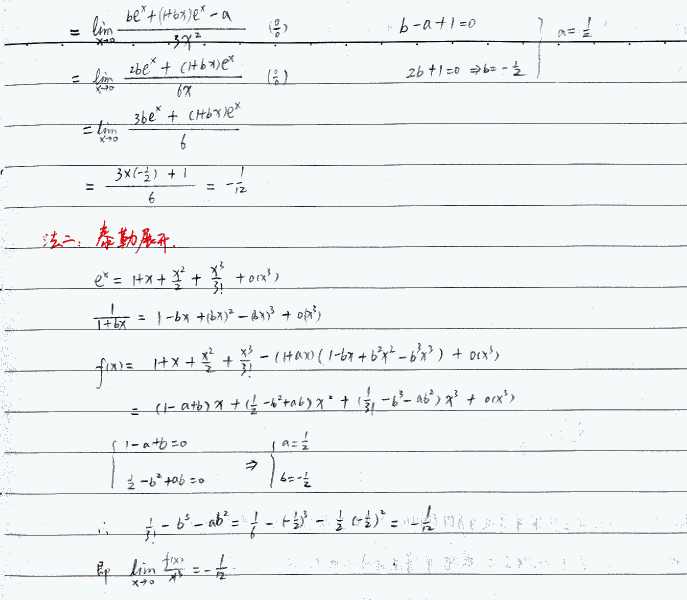 = lim x→0 (be^x + (1+bx)e^x - a) / 3x² (0/0) b - a + 1 = 0 a = 1/2
= lim x→0 (2be^x + (1+bx)e^x) / 6x (0/0) 2b + 1 = 0 ⇒ b = -1/2
= lim x→0 (3be^x + (1+bx)e^x) / 6
= (3×(-1/2) + 1) / 6 = -1/12
法二: 泰勒展开.
e^x = 1 + x + x²/2 + x³/3! + o(x³)
1/(1+bx) = 1 - bx + (bx)² - (bx)³ + o(x³)
f(x) = 1 + x + x²/2 + x³/3! - (1+ax)(1 - bx + b²x² - b³x³) + o(x³)
= (1-a+b)x + (1/2 - b² + ab)x² + (1/3! - b³ - ab²)x³ + o(x³)
{ 1-a+b = 0 ⇒ { a = 1/2
1/2 - b² + ab = 0 b = -1/2
∴ 1/3! - b³ - ab² = 1/6 - (-1/2)³ - 1/2(-1/2)² = -1/12
即 lim x→0 f(x)/x³ = -1/12.